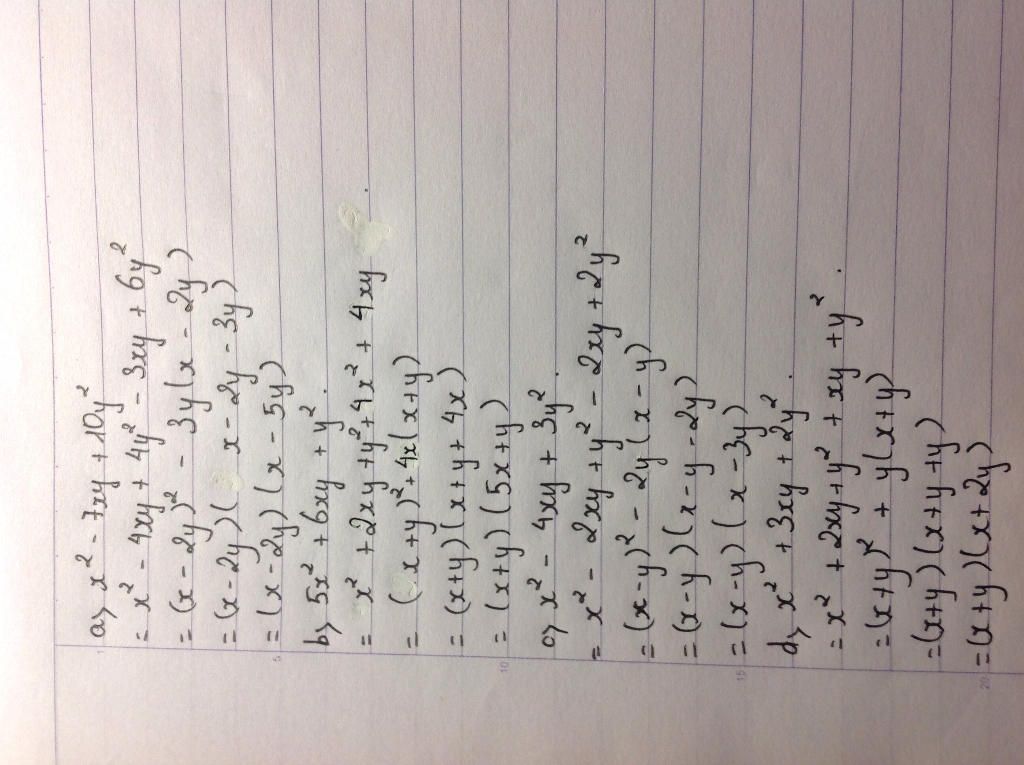 a> x² - 7xy + 10y²
= x² - 4xy + 4y² - 3xy + 6y²
= (x - 2y)² - 3y(x - 2y)
= (x - 2y)(x - 2y - 3y)
= (x - 2y)(x - 5y)
b> 5x² + 6xy + y².
= x² + 2xy + y² + 4x² + 4xy.
= (x+y)² + 4x(x+y)
= (x+y)(x+y+4x)
= (x+y)(5x+y)
c> x² - 4xy + 3y².
= x² - 2xy + y² - 2xy + 2y²
= (x-y)² - 2y(x-y)
= (x-y)(x-y-2y)
= (x-y)(x-3y)
d> x² + 3xy + 2y².
= x² + 2xy + y² + xy + y².
= (x+y)² + y(x+y)
= (x+y)(x+y+y)
= (x+y)(x+2y)
1
5
10
15
20